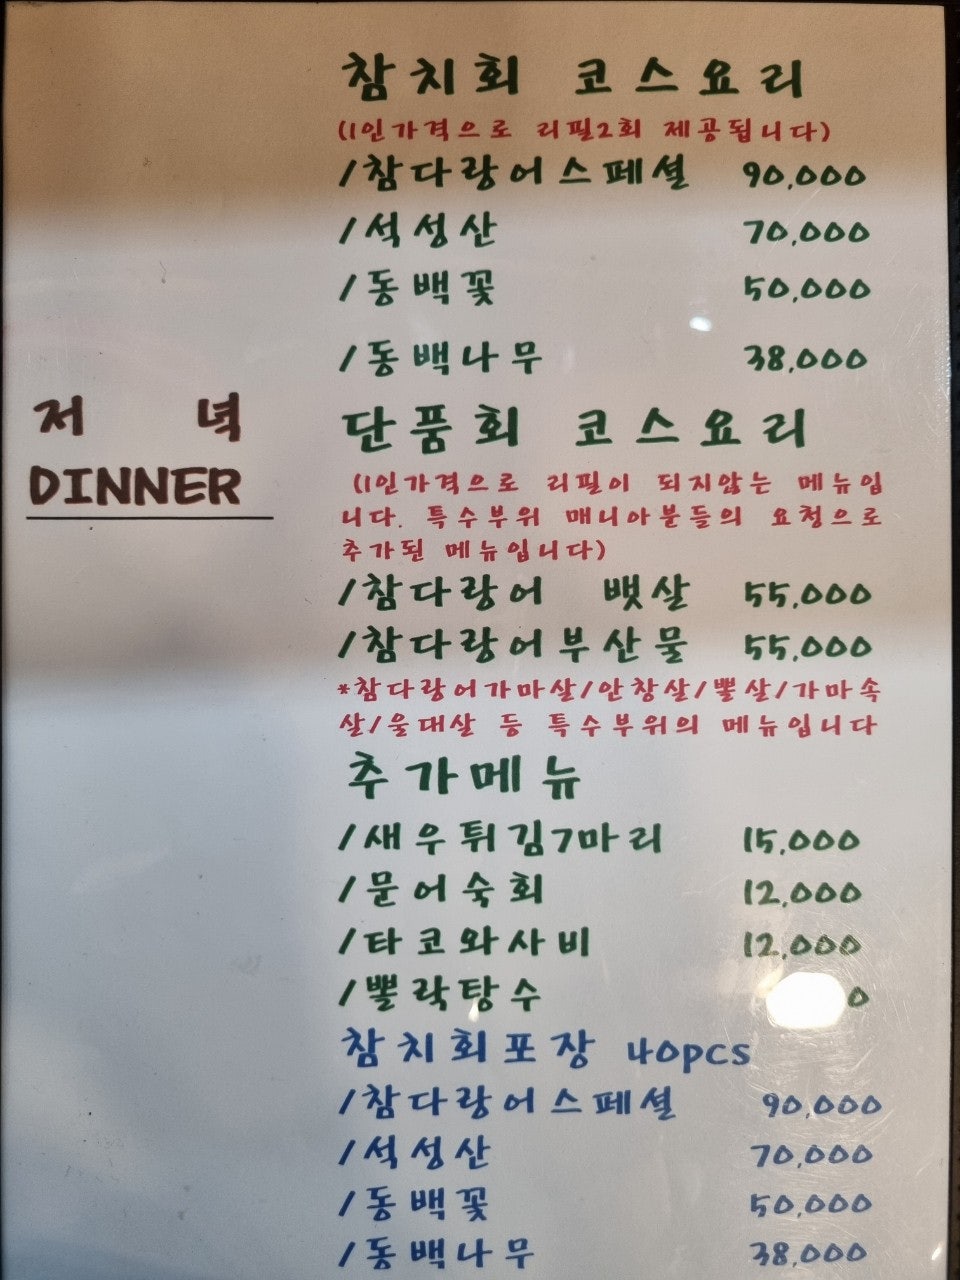 참치회 코스요리
(1인가격으로 리필2회 제공됩니다)
/참다랑어스페셜 90,000
/석성산 70,000
/동백꽃 50,000
/동백나무 38,000
저녁
DINNER
단품회 코스요리
(1인가격으로 리필이 되지않는 메뉴입
니다. 특수부위 매니아분들의 요청으로
추가된 메뉴입니다)
/참다랑어 뱃살 55,000
/참다랑어부산물 55,000
*참다랑어가마살/안창살/뽈살/가마속
살/울대살 등 특수부위의 메뉴입니다
추가메뉴
/새우튀김7마리 15,000
/문어숙회 12,000
/타코와사비 12,000
/뽈락탕수
참치회포장 40pcs
/참다랑어스페셜 90,000
/석성산 70,000
/동백꽃 50,000
/동백나무 38,000